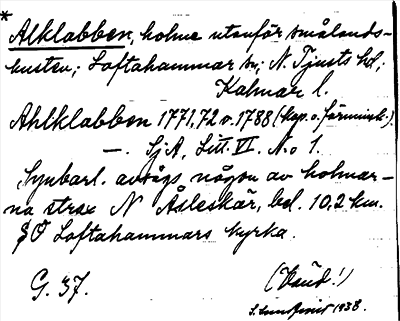 * Alklabben, holme utanför smålands-
kusten; Loftahammar sn; N. Tjusts hd;
Kalmar l.
Ahlklabben 1771,72 o. 1788 (kop. o. förminsk.)
—. SjA, Litt. VI. No 1.
Synbarl. avsågs någon av holmar-
na strax N Åsleskär, bel. 10,2 km.
SO Loftahammars kyrka.
G. 37.
(Vaud!)
1938.